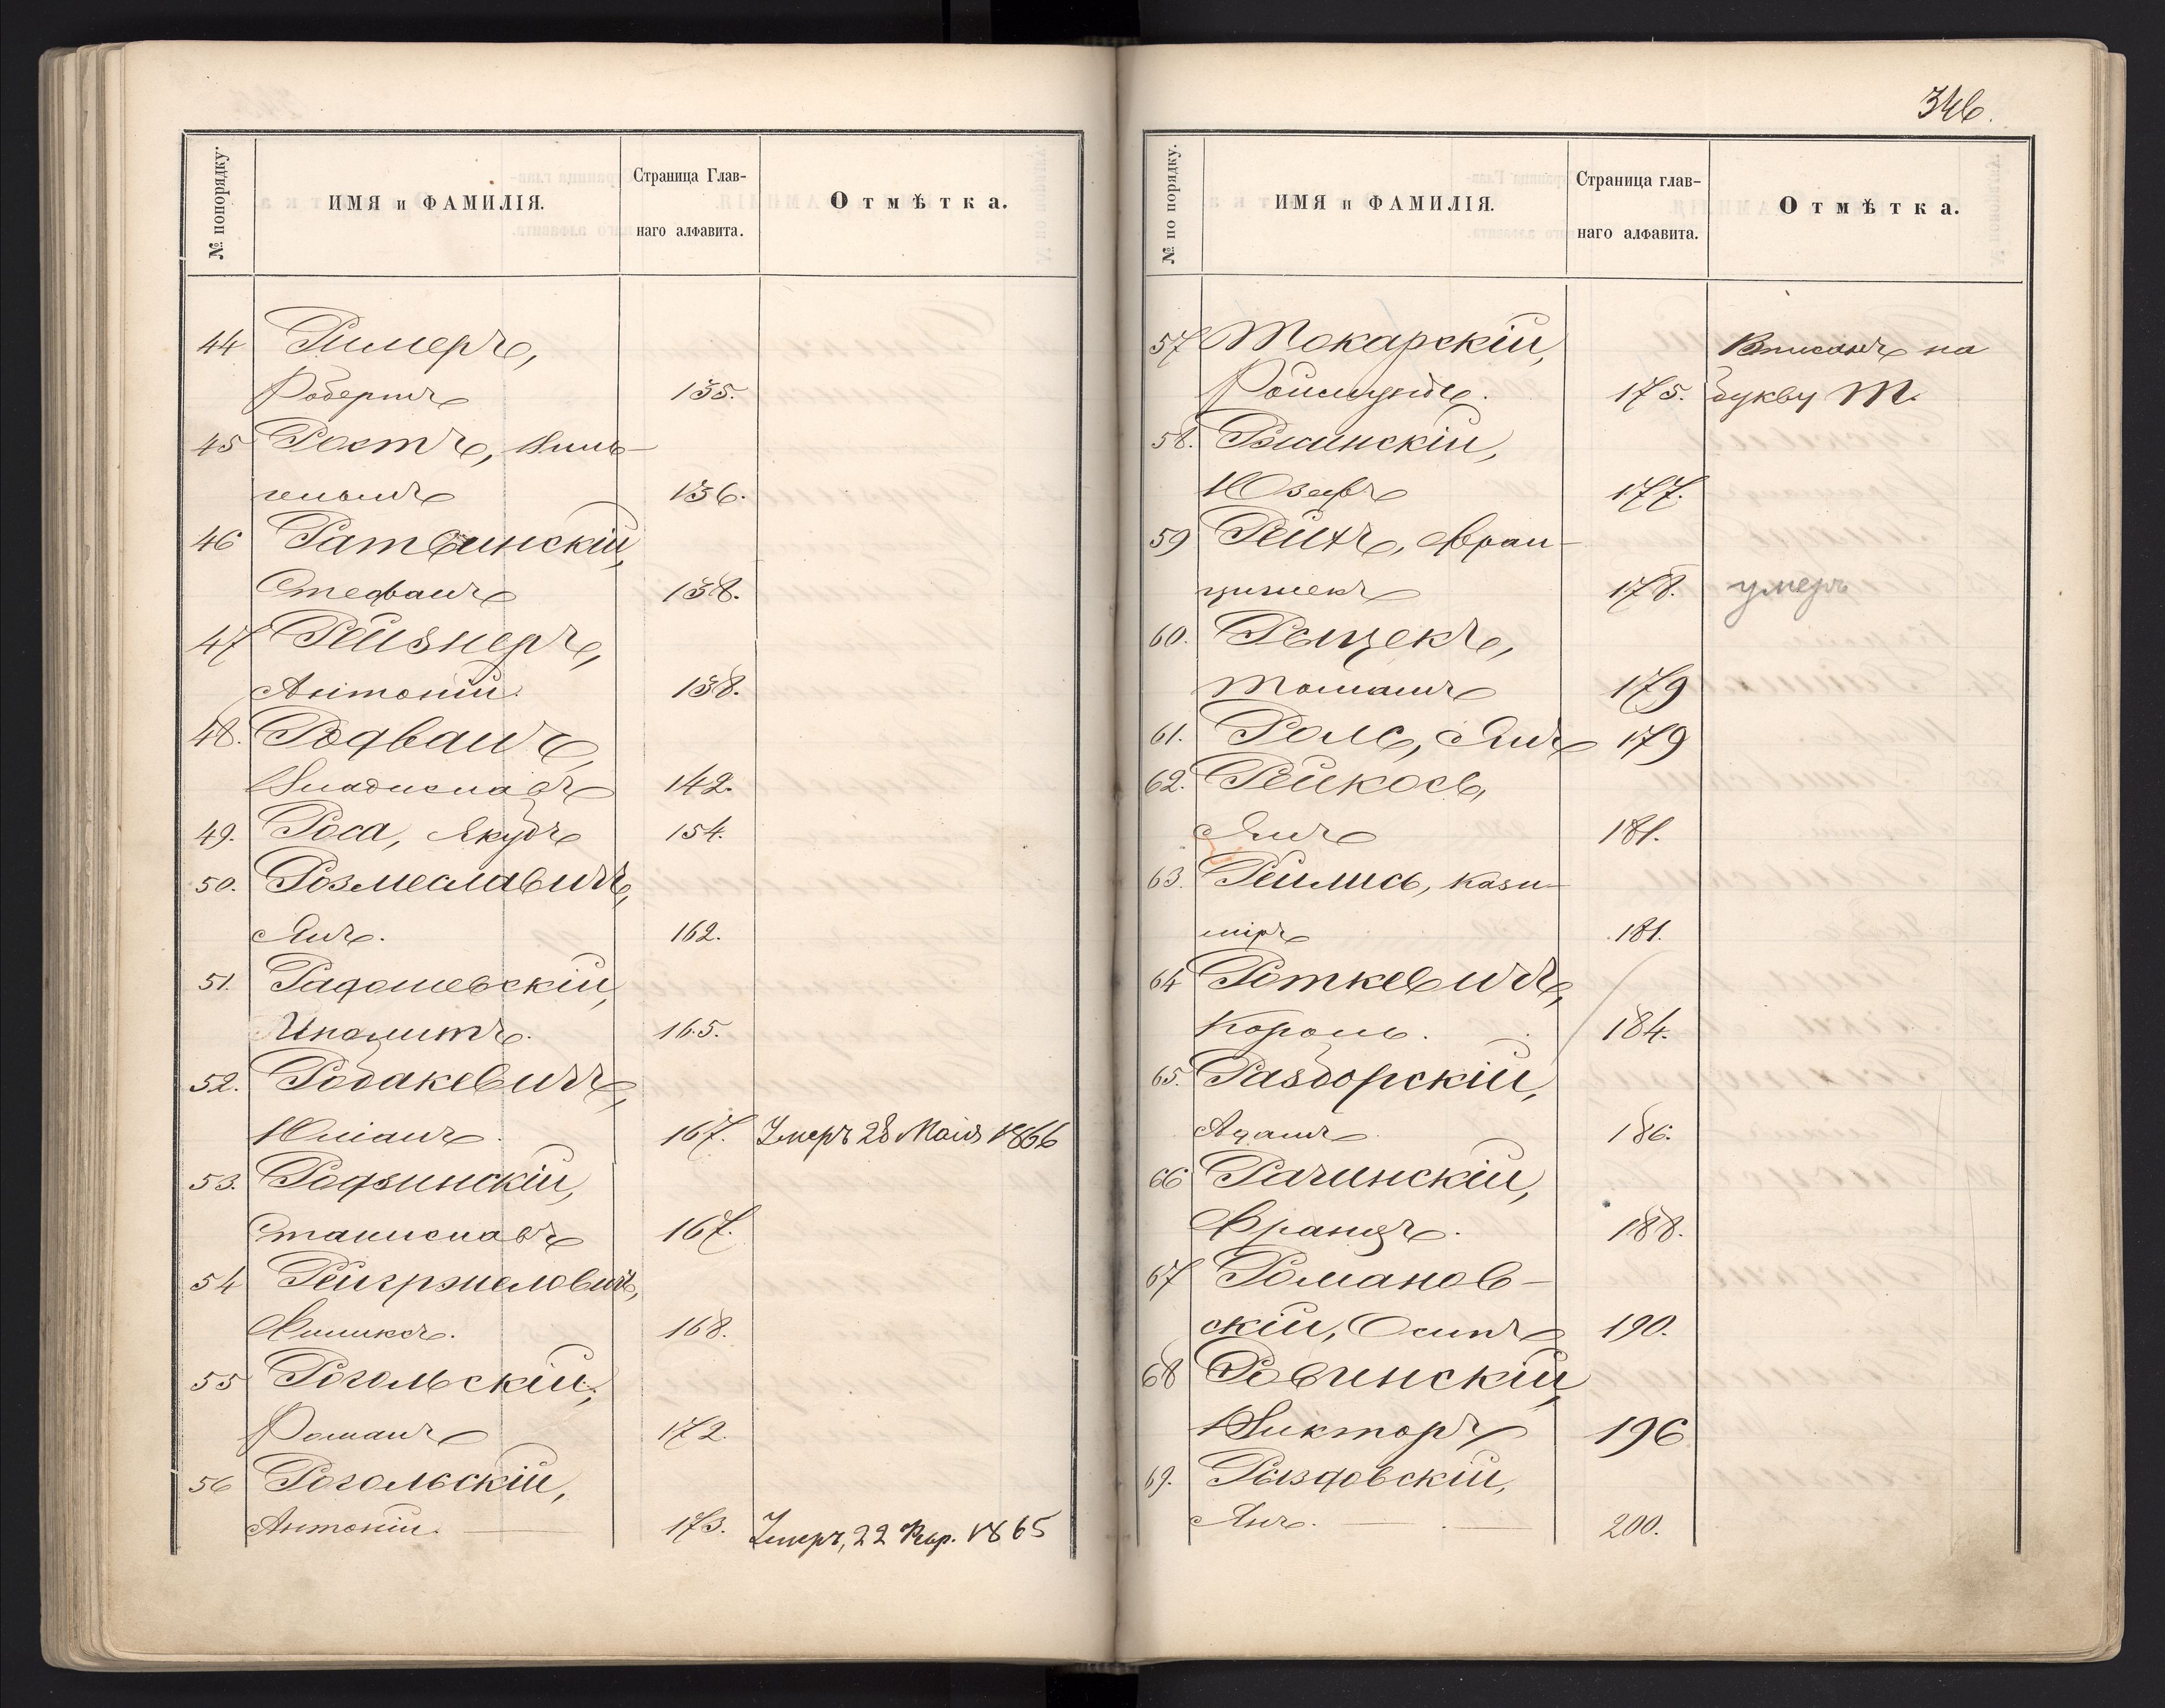 № попорядку.
ИМЯ и ФАМИЛІЯ.
Страница Глав-
наго алфавита.
Отмѣтка.
44 Римеръ,
Робертъ 135.
45 Ростъ, Виль-
гельмъ 136.
46 Ратвинскій,
Стефанъ 138.
47 Рейзнеръ,
Антоній 138.
48. Родванъ,
Владиславъ 142.
49. Роса, Якубъ 154.
50. Розмеславичъ,
Янъ. 162.
51. Радошевскій,
Иполитъ. 165.
52. Робакевичъ,
Юліанъ. 167. Умеръ 28 Маія 1866
53. Родзинскій,
Станиславъ 167.
54 Рейгржеловичъ,
Феликсъ. 168.
55 Рогольскій,
Романъ 172.
56 Рогольскій,
Антоній. 173. Умеръ, 22 Февр. 1865
346.
№ по порядку.
ИМЯ и ФАМИЛІЯ.
Страница глав-
наго алфавита.
Отмѣтка.
57 Токарскій, Вписанъ на
Раймундъ. 175. букву Т.
58. Рыминскій,
Юзефъ 177.
59 Рейхъ, Фран-
цишекъ 178. умеръ
60. Рыцекъ,
Томашъ 179
61. Ромъ, Янъ 179
62. Рейкось,
Янъ 181.
63. Реймись, Кази-
міръ 181.
64 Роткевичъ,
Король. 184.
65. Разборскій,
Адамъ 186.
66 Рачинскій,
Францъ. 188.
67 Романов-
скій, Осипъ 190.
68 Ровинскій,
Викторъ 196
69. Рыздовскій,
Янъ. 200.